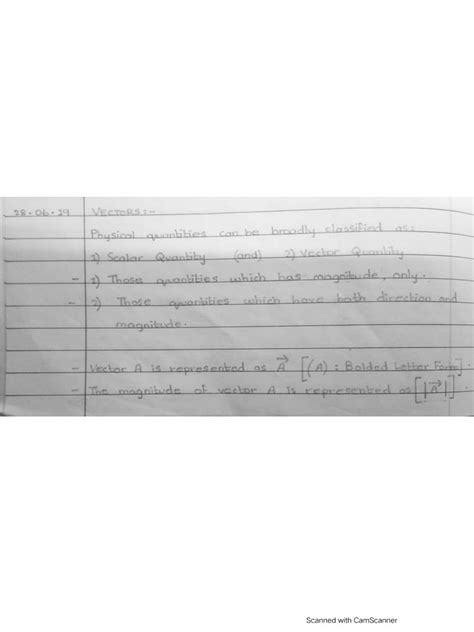 28.06.19 VECTORS:-
Physical quantities can be broadly classified as:
1) Scalar Quantity (and) 2) Vector Quantity
- 1) Those quantities which has magnitude, only.
- 2) Those quantities which have both direction and
magnitude.
- Vector A is represented as A⃗ [(A) : Bolded Letter Form].
- The magnitude of vector A is represented as [|A⃗|]
Scanned with CamScanner